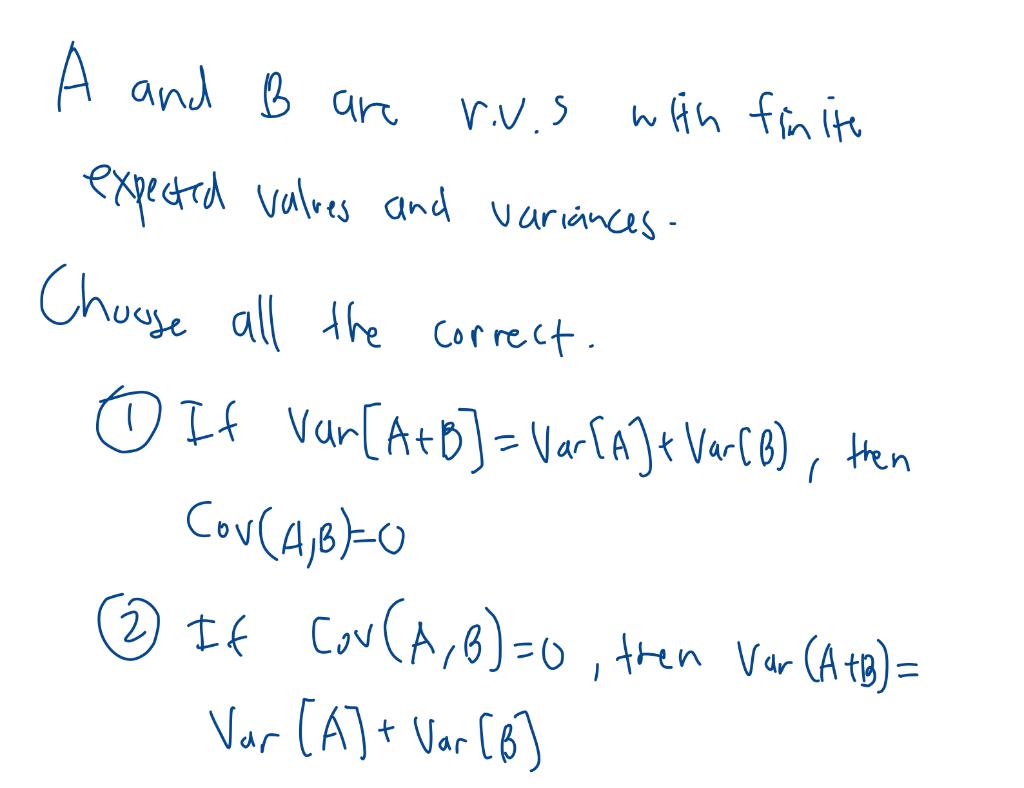 A and B are r.v.s with finite
expected values and variances.
Choose all the correct.
① If Var[A+B]=Var[A]+Var[B), then
Cov(A,B)=0
② If Cov(A,B)=0, then Var(A+B)=
Var[A]+Var[B]